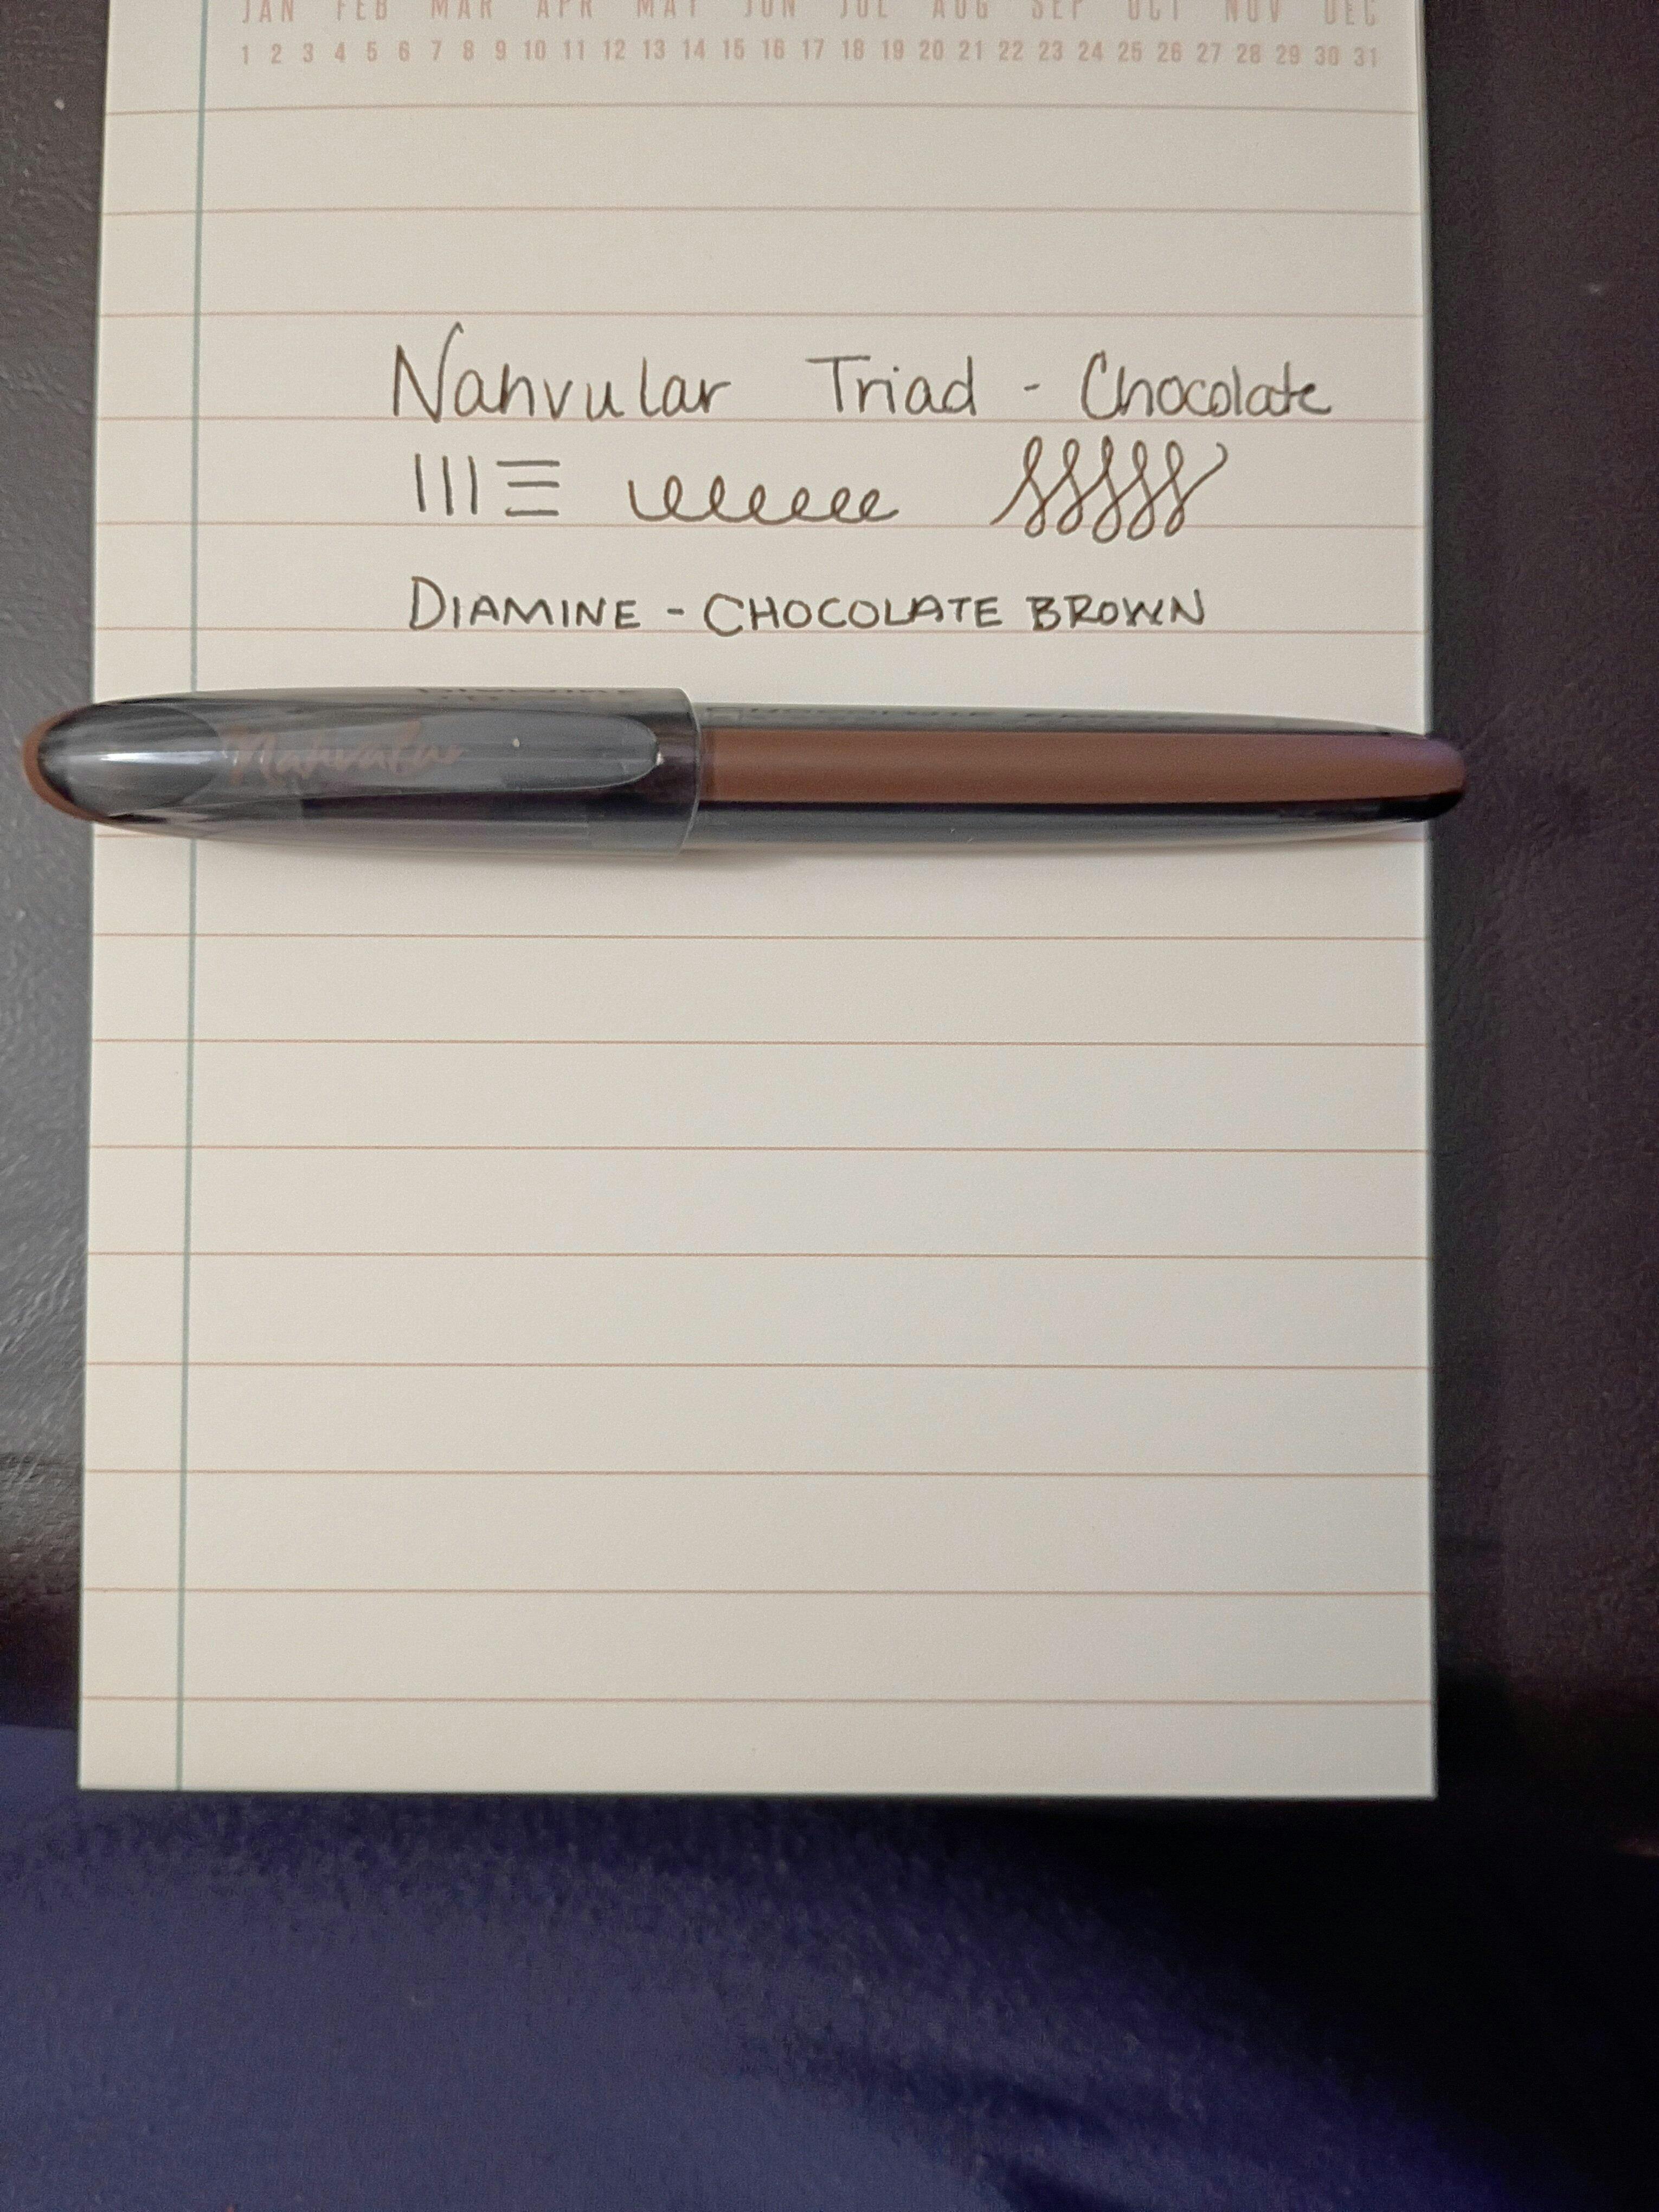 JAN FEB MAR APR MAY JUN JUL AUG SEP OCT NOV DEC
1 2 3 4 5 6 7 8 9 10 11 12 13 14 15 16 17 18 19 20 21 22 23 24 25 26 27 28 29 30 31
Nahvular Triad - Chocolate
DIAMINE - CHOCOLATE BROWN